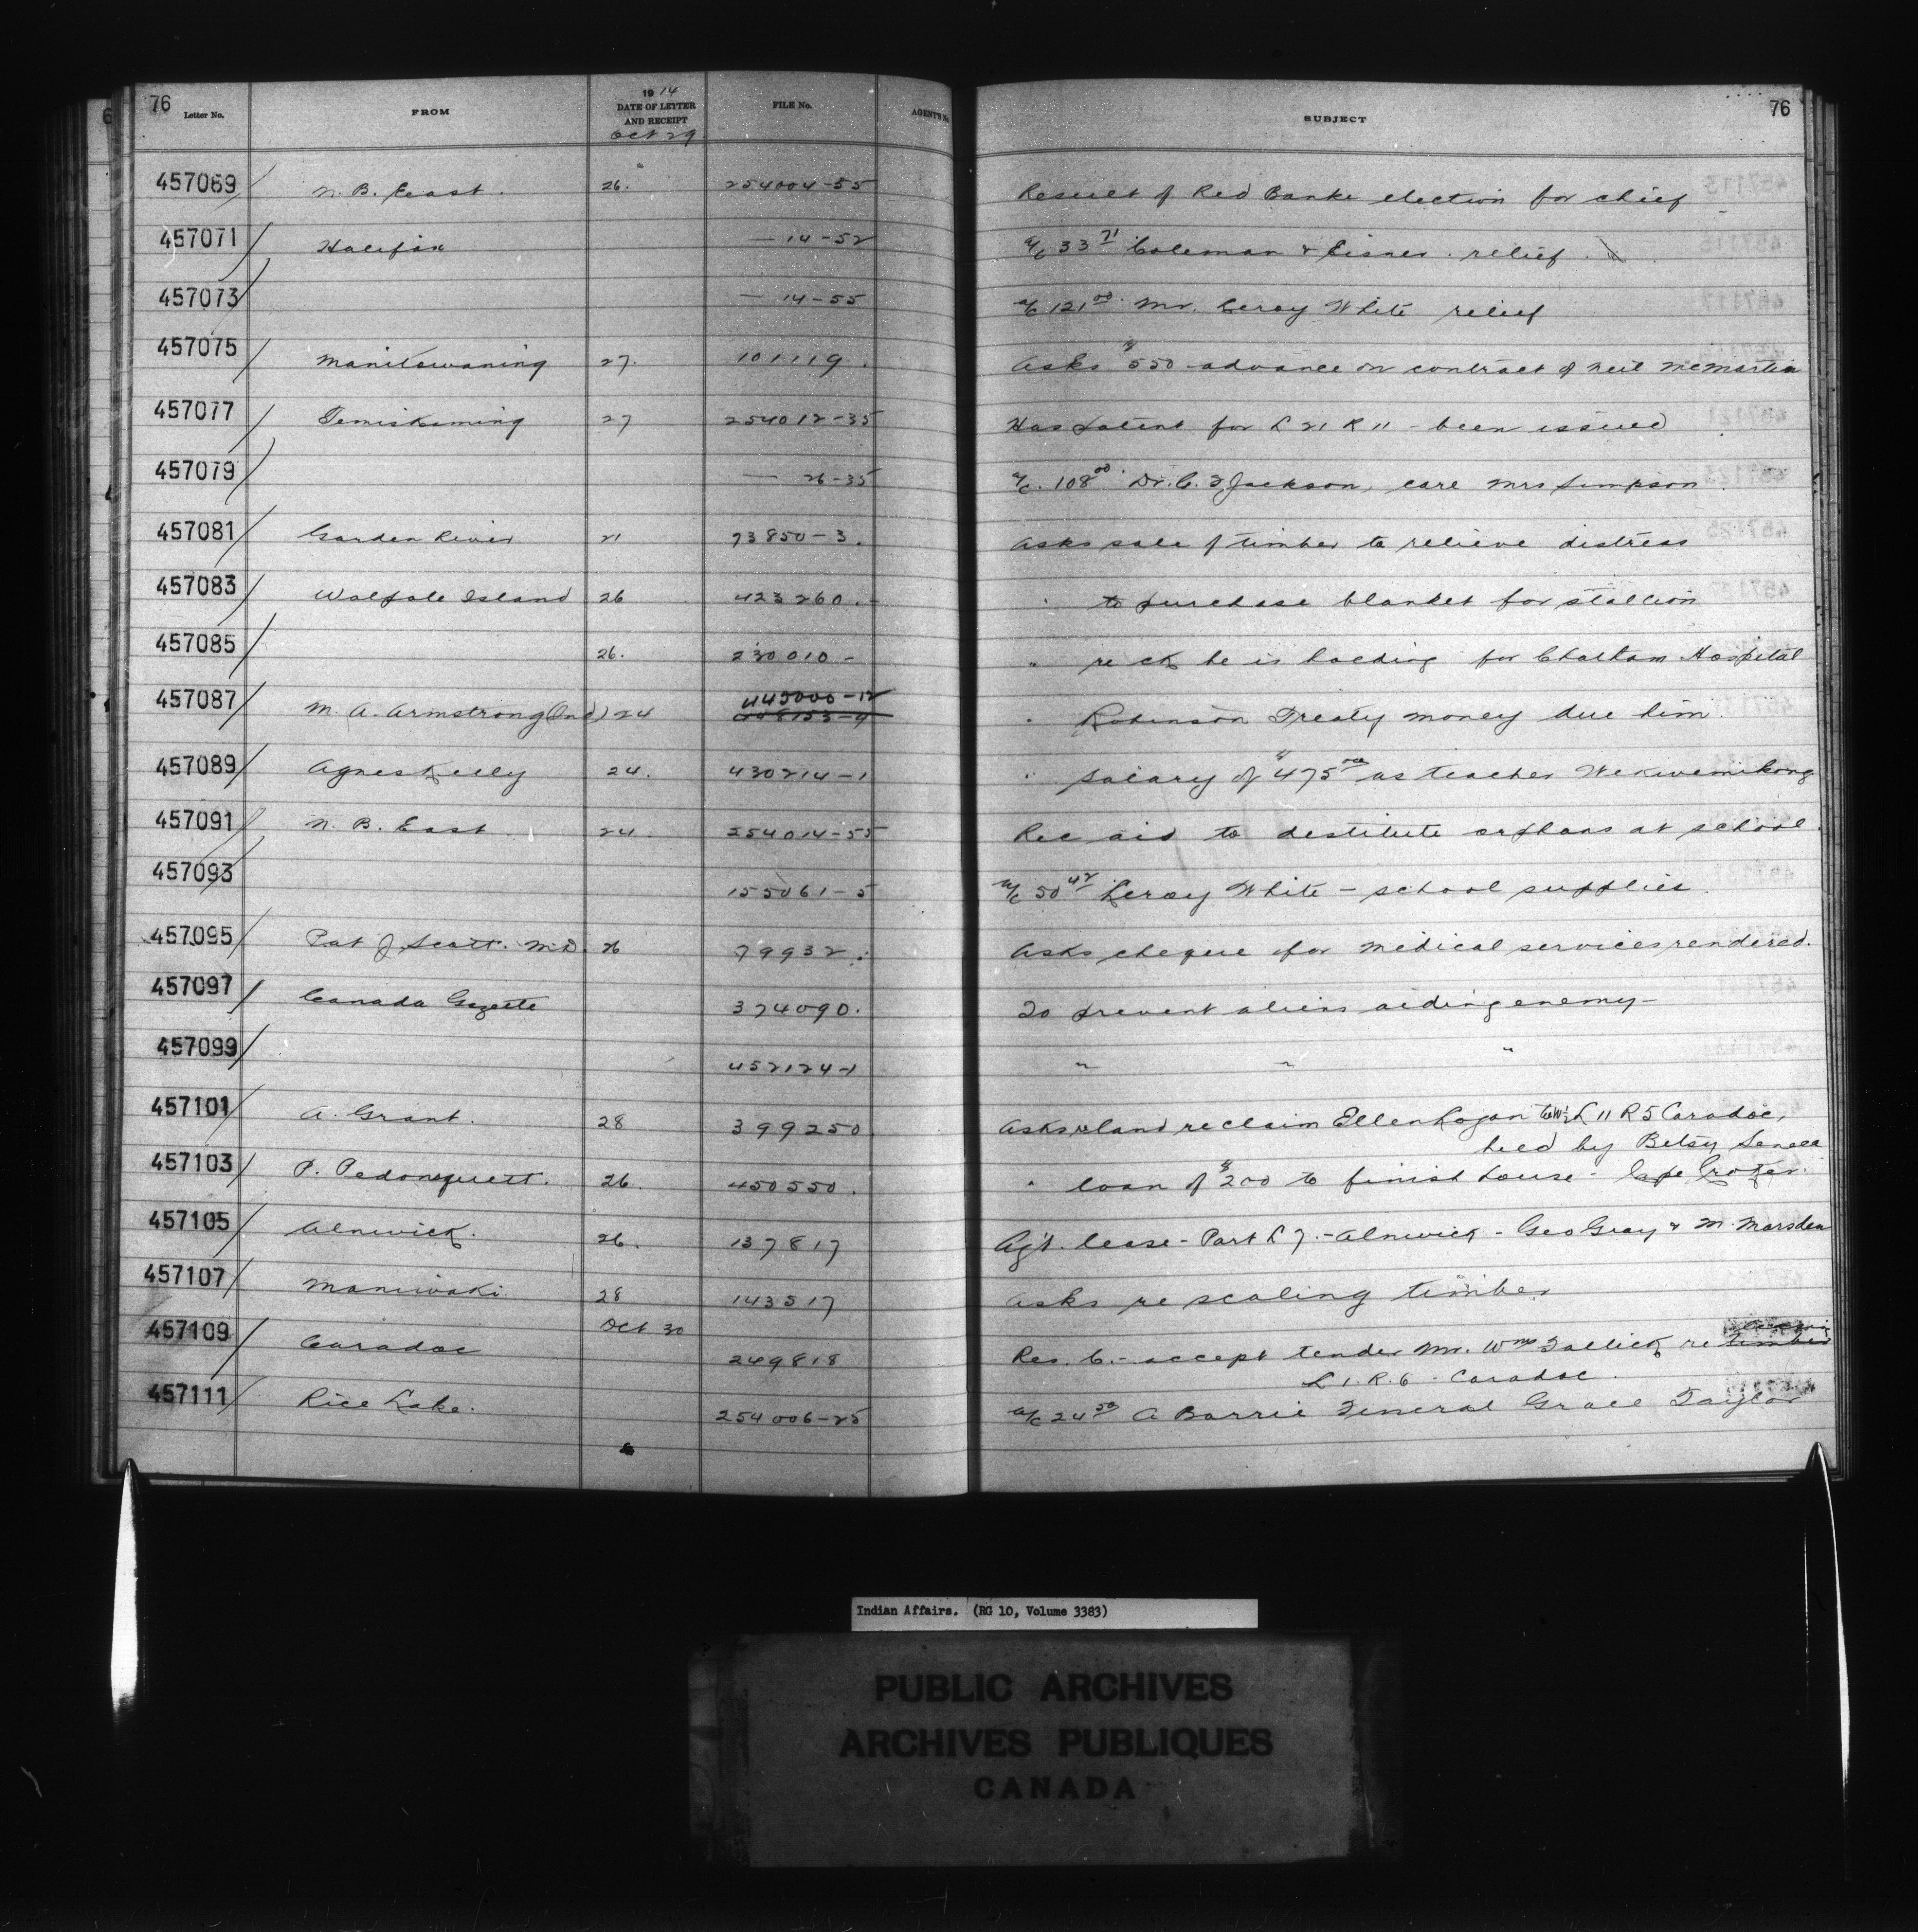 76 Letter No. FROM 1914 DATE OF LETTER AND RECEIPT FILE No. AGENT'S No. SUBJECT 76
Oct 29
457069 N. B. East. 26. 254004-55 Result of Red Banke election for chief
457071 Halifax — 14-52 a/c 33 71 Coleman & Eisner. relief.
457073 — 14-55 a/c 121 00 Mr. Leroy White relief
457075 Manitowaning 27. 101119. Asks $550 advance on contract of Neil McMartin
457077 Temiskaming 27 254012-35 Has patent for L 21 R 11 - been issued
457079 — 26-35 a/c. 108 00 Dr. C. F. Jackson, care Mrs Simpson
457081 Garden River 21 73850-3. Asks sale of timber to relieve distress
457083 Walpole Island 26 423260.- " to purchase blanket for stallion
457085 26. 230010- " re ck he is holding for Chatham Hospital
457087 M. A. Armstrong (Ind) 24 445000-12 " Robinson Treaty money due him.
457089 Agnes Kelly 24. 430214-1 " salary of $475 00 as teacher Wekwemikong
457091 N. B. East 24. 254014-55 Rec aid to destitute orphans at school.
457093 155061-5 a/c 50 42 Leroy White - school supplies.
457095 Pat J Scott. M.D. 26 79932. Asks cheque for medical services rendered.
457097 Canada Gazette 374090. To prevent aliens aiding enemy-
457099 452124-1 " " "
457101 A. Grant. 28 399250 Asks re land reclaim Ellen Logan to W½ L 11 R 5 Caradoc,
held by Betsy Seneca
457103 P. Pedonquett. 26. 450550. " loan of $200 to finish house - Cape Croker.
457105 Alnwick. 26. 137817 Agt. lease - Part L 7. - Alnwick - Geo Gray & M. Marsden
457107 Maniwaki 28 143517 Asks re scaling timber
Oct 30
457109 Caradoc 249818 Res. C. - accept tender Mr. Wm Gallick re timber
L 1. R. 6. Caradoc.
457111 Rice Lake. 254006-25 a/c 24 50 A Barrie Funeral Grace Taylor
Indian Affairs. (RG 10, Volume 3383)
PUBLIC ARCHIVES
ARCHIVES PUBLIQUES
CANADA